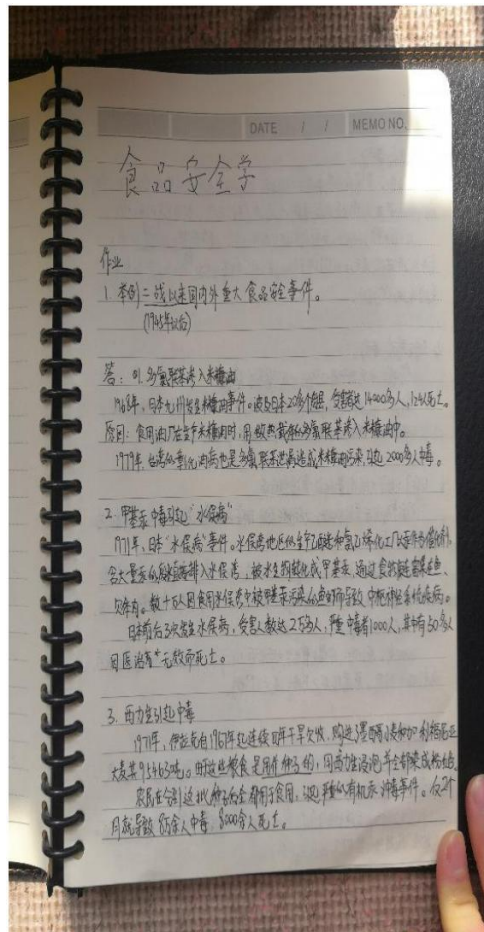 DATE / / MEMO NO.
食品安全学
作业
1. 举例二战以来国内外重大食品安全事件。
(1945年以后)
答：01.多氯联苯渗入米糠油
1968年，日本九州发生米糠油事件。波及日本20多个府县，受害者达14000多人，124人死亡。
原因：食用油厂在生产米糠油时，用做热载体的多氯联苯渗入米糠油中。
1979年，台湾的油病也是多氯联苯造成米糠油污染，引起2000多人中毒。
2. 甲基汞中毒引起"水俣病"
1971年，日本"水俣病"事件。水俣湾地区的生产乙醛和氯乙烯化工厂以汞作为催化剂，
含大量汞的排入水俣湾，被水生物转化成甲基汞，通过食物链富集在鱼、
贝体内。数十万人因食用水俣湾中被甲基汞污染的鱼而导致中枢神经系统疾病。
日本前后3次发生水俣病，受害人数达2.5万多人，严重中毒有1000人，其中有50多人
因医治无效而死亡。
3. 西力生引起中毒
1971年，伊拉克自1967年起连续四年干旱欠收，购进墨西哥小麦和加利福尼亚
大麦共95465吨。由于这些粮食是用作种子的，用西力生浸泡并全部染成粉红色
农民在分到这批种子后全部用于食用，引起严重的有机汞中毒事件。仅2个
月就导致8万余人中毒，8000多人死亡。